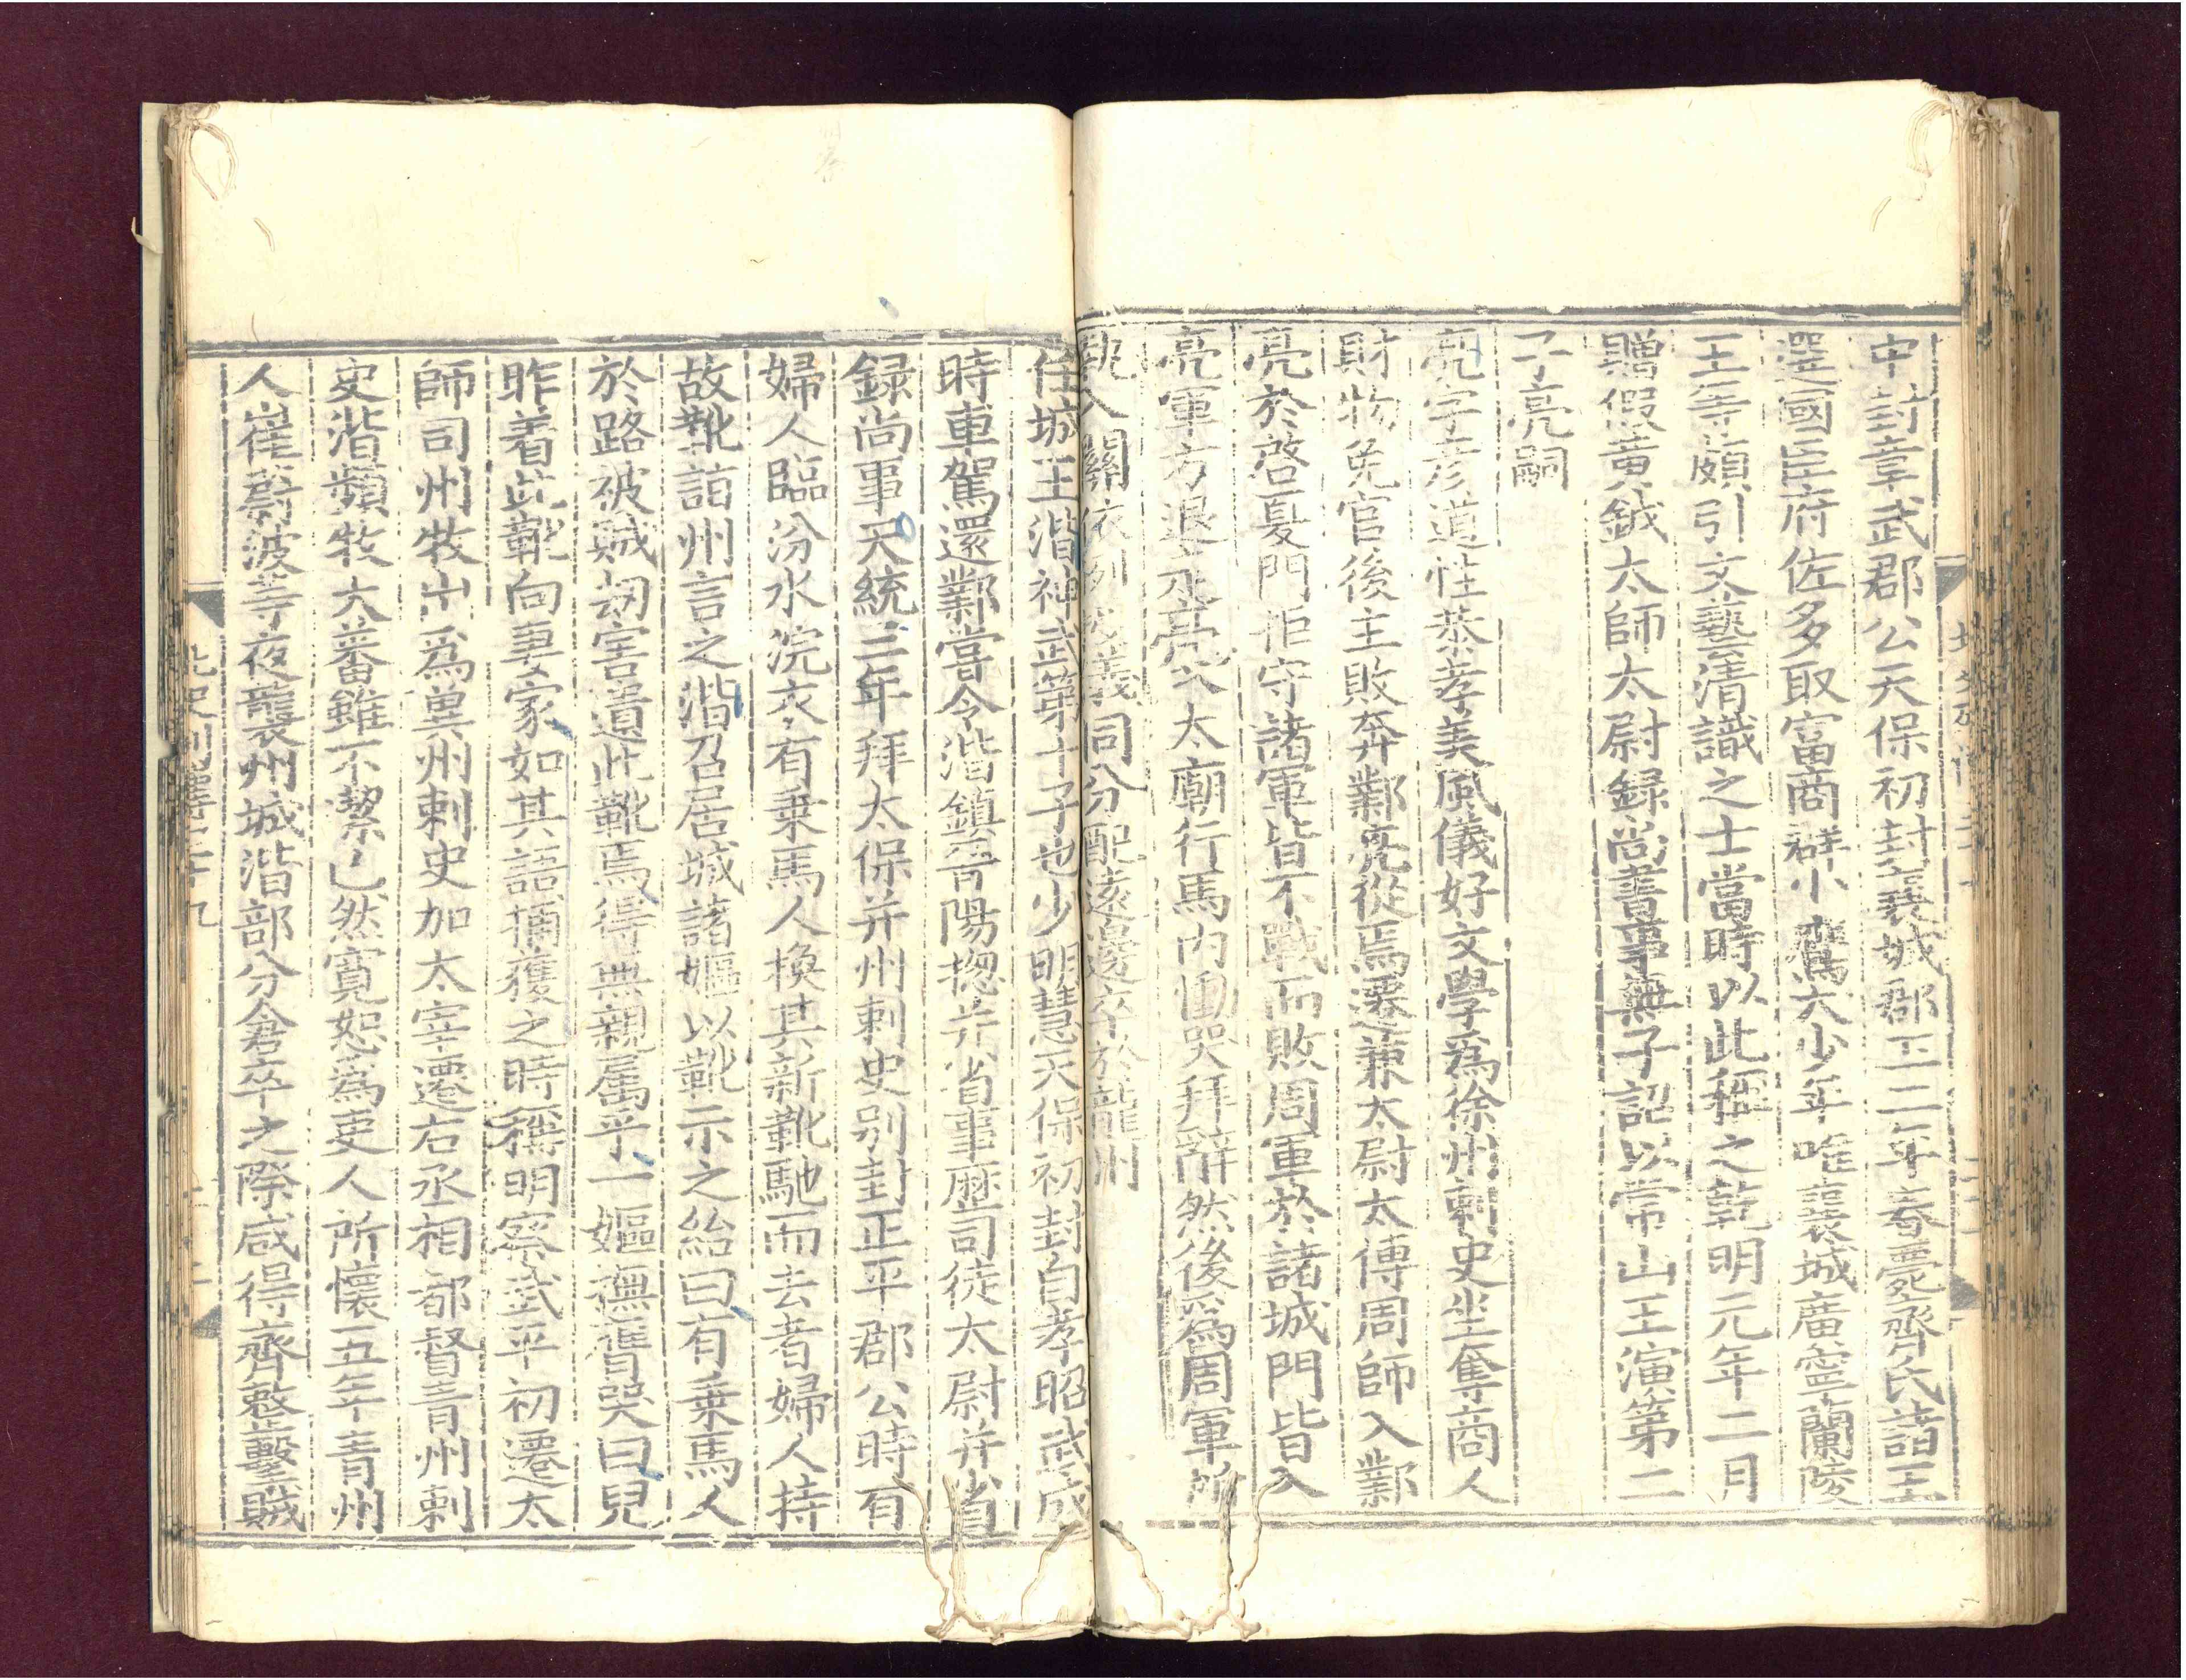 中封章武郡公天保初封襄城郡王二年春薨齊氏諸王
選國臣府佐多取富商群小鷹犬少年唯襄城廣寧蘭陵
王等頗引文藝清識之士當時以此稱之乾明元年二月
贈假黃鉞太師太尉録尚書事無子詔以常山王演第二
子亮嗣
亮字彦道性恭孝美風儀好文學為徐州刺史坐奪商人
財物免官後主敗奔鄴亮從焉遷兼太尉太傅周師入鄴
亮於啓夏門拒守諸軍皆不戰而敗周軍於諸城門皆入
亮軍方退走亮入太廟行馬内慟哭拜辭然後爲周軍所
執入關依例授儀同分配遠邊卒於龍州
任城王湝神武第十子也少明慧天保初封自孝昭武成
時車駕還鄴嘗令湝鎮晉陽揔并省事歷司徒太尉并省
録尚事天統三年拜太保并州刺史别封正平郡公時有
婦人臨汾水浣衣有乗馬人換其新靴馳而去者婦人持
故靴詣州言之湝召居城諸嫗以靴示之紿曰有乗馬人
於路被賊刧害遺此靴焉得無親屬乎一嫗撫膺哭曰兒
昨着此靴向妻家如其語捕獲之時稱明察武平初遷太
師司州牧出爲兾州刺史加太宰遷右丞相都督青州刺
史湝頻牧大蕃雖不潔己然寛恕爲吏人所懷五年青州
人崔蔚波等夜襲州城湝部分倉卒之際咸得齊整擊賊
北史列傳三十九